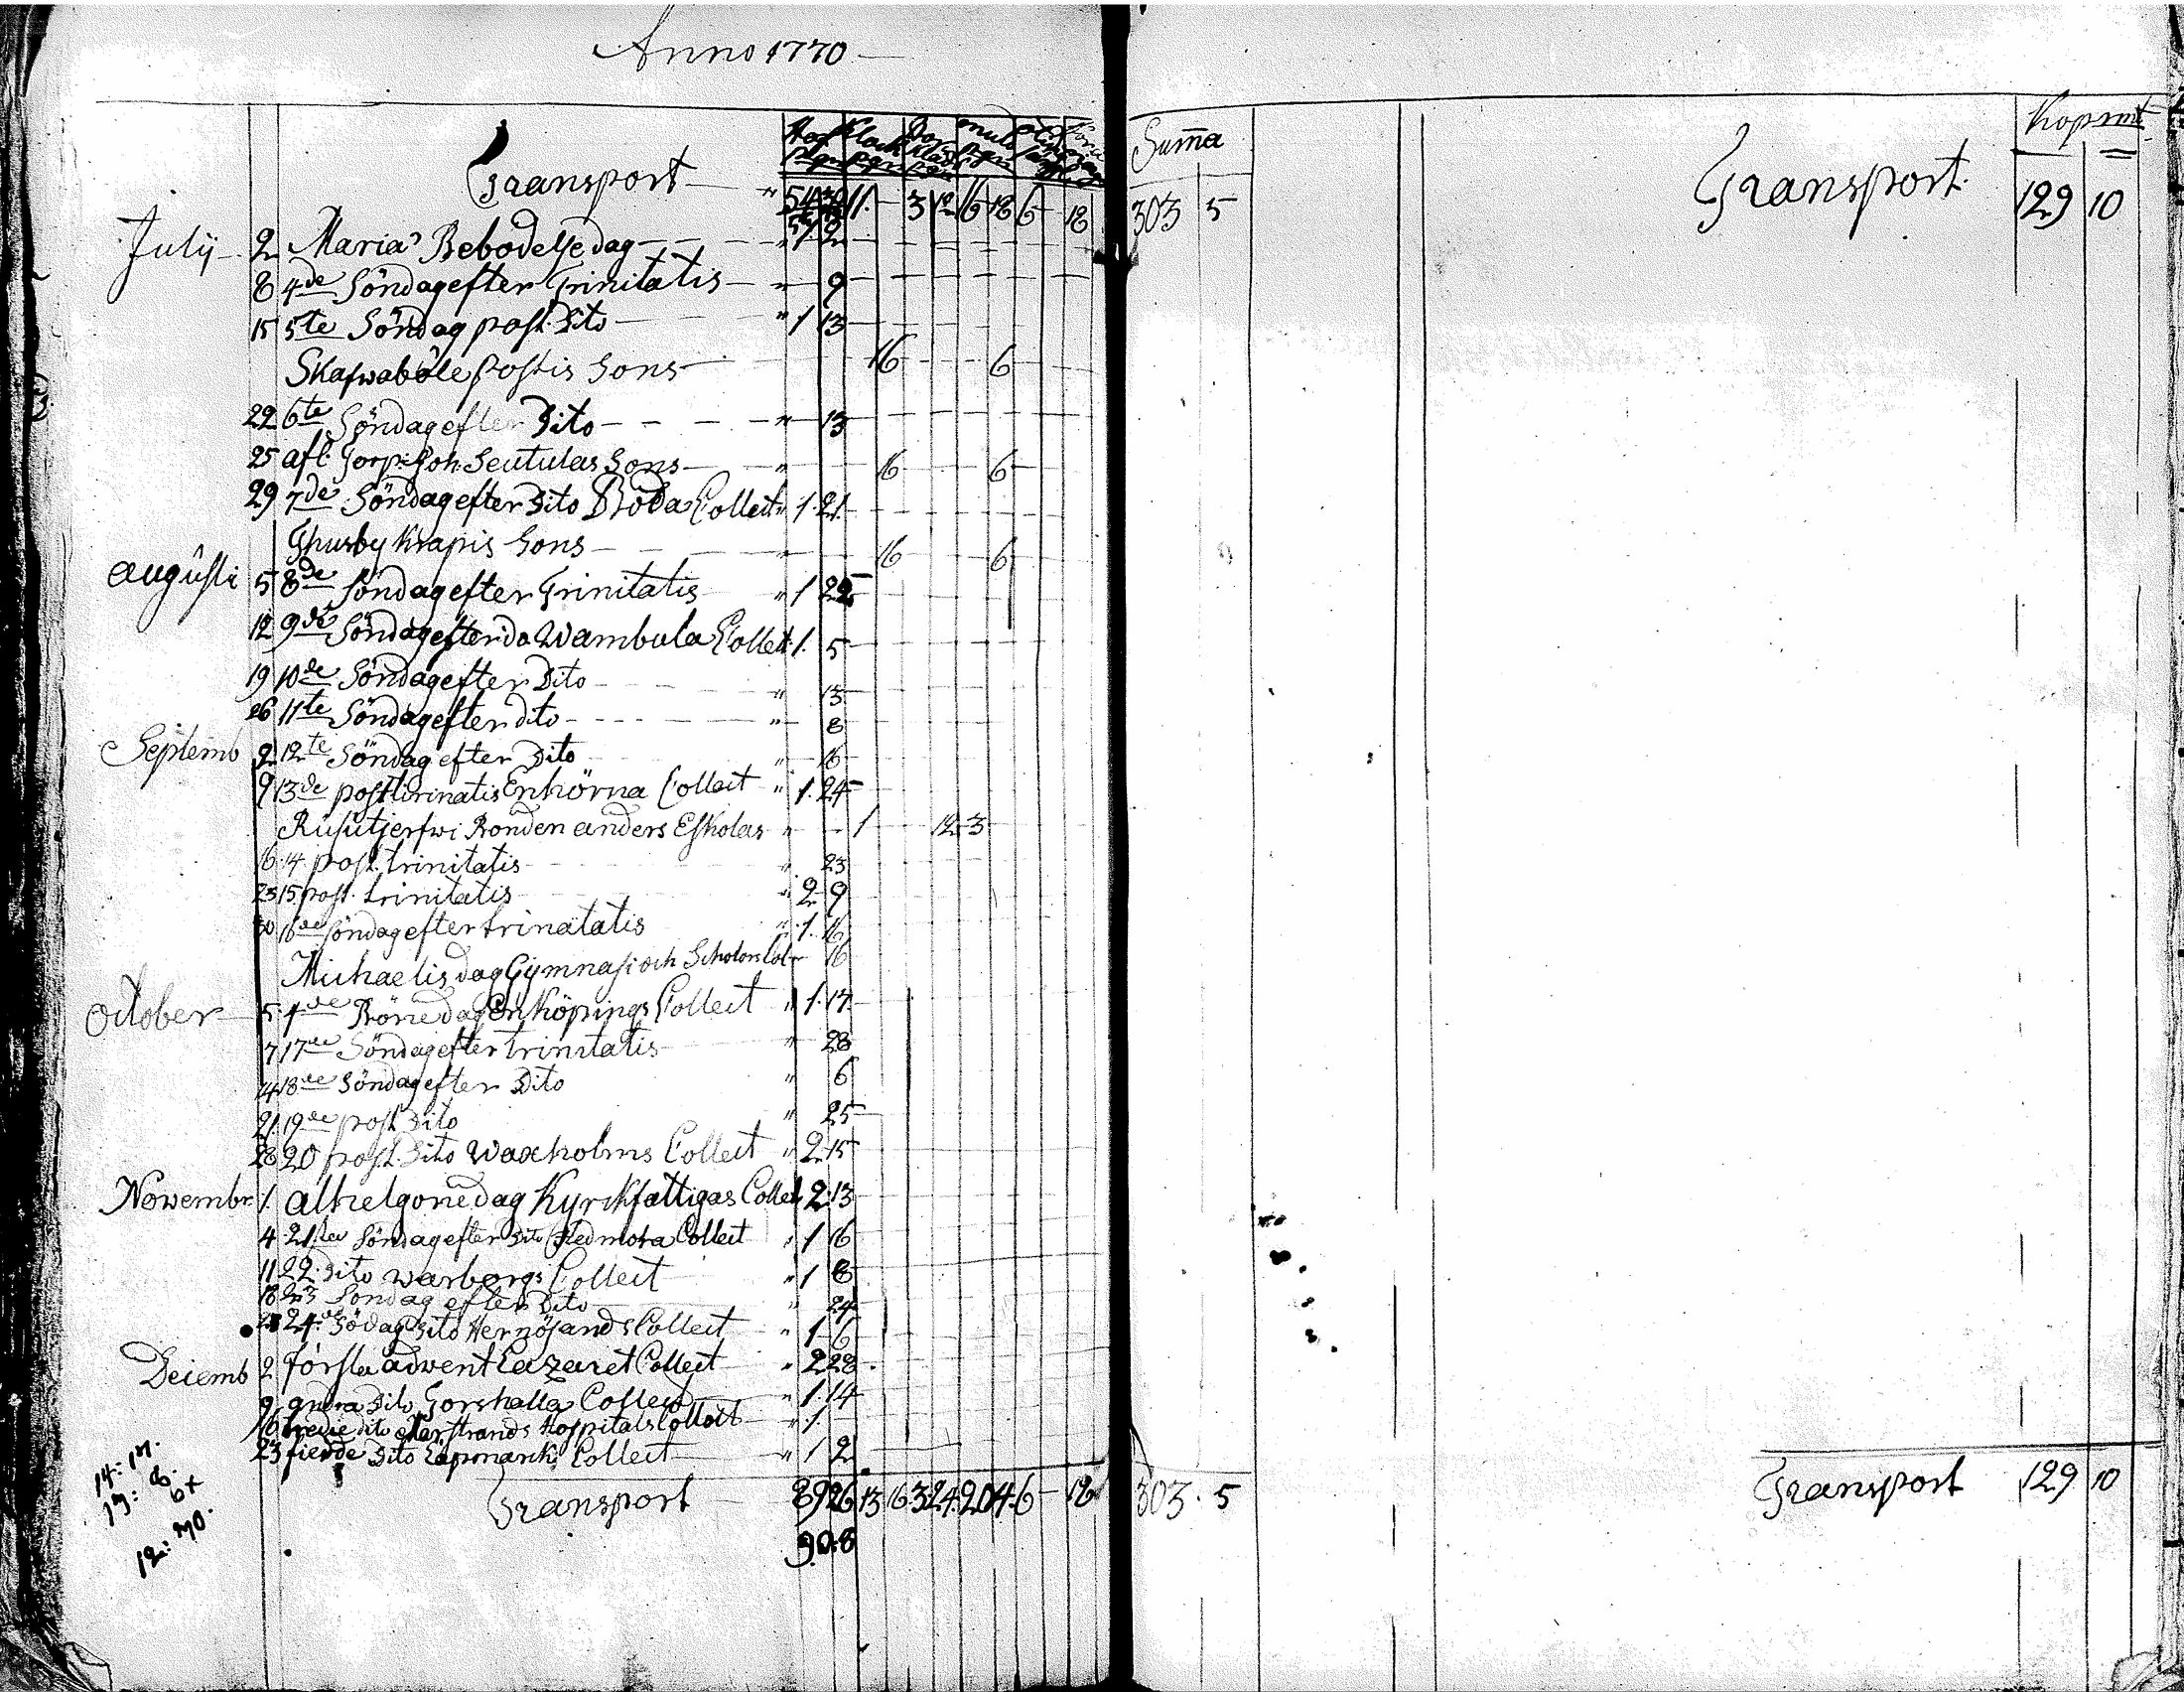 Anno 1770
Transport 11 3 12 16 18 6 18
July 2 Mariæ Bebodelse dag 1 2
8 4de Söndag efter Trinitatis 9
15 5te Söndag post Dito 1 13
Skafwaböle Postis Sons 16 6
22 6te Söndag efter Dito 13
25 afl: Sons 16 6
29 7de Söndag efter Dito Boda Collect 1 21
Thusby Krapis Sons 16 6
Augusti 5 8de Söndag efter Trinitatis 1 22
12 9de Söndag efter do Wambula Collect 1 5
19 10de Söndag efter Dito 13
26 11te Söndag efter dito 8
Septemb 2 12te Söndag efter Dito 16
9 13de post trinatis Enhörna Collect 1 24
Rusutjerfwi Bonden anders Eskolas 1 12 3
16 14 post trinitatis 23
23 15 post trinitatis 2 9
30 16de Söndag efter trinatatis 1 16
Michaelis dag Gymnasi och Scholors Col 16
October 5 4de Böne dag Enköpings Collect 1 17
7 17de Söndag efter trinitatis 28
14 18de Söndag efter Dito 6
21 19de post Dito 25
28 20 post Dito Waxholms Collect 2 15
Nowembr 1 alhelgone dag Kyrkfattigas Collect 2 13
4 21sta Söndag efter Dito Hedmora Collect 1 16
11 22 Dito Warborgs Collect 1 8
18 23 Söndag efter Dito 24
24 Södag Dito Hernösands Collect 1 6
Decemb 2 Första adwent Lazaret Collect 2 28
9 andra Dito Torshalla Collect 1 14
16 tredie dito Marstrands Hospitals Collect 1
23 fierde Dito Lapmarcks Collect 1 2
Transport 89 26 13 16 3 24 20 4 6 18
90 8
14: 17.
19: 8.
12: 70.
Suma
303 5
303 5
Kopmt
Transport 129 10
Transport 129 10